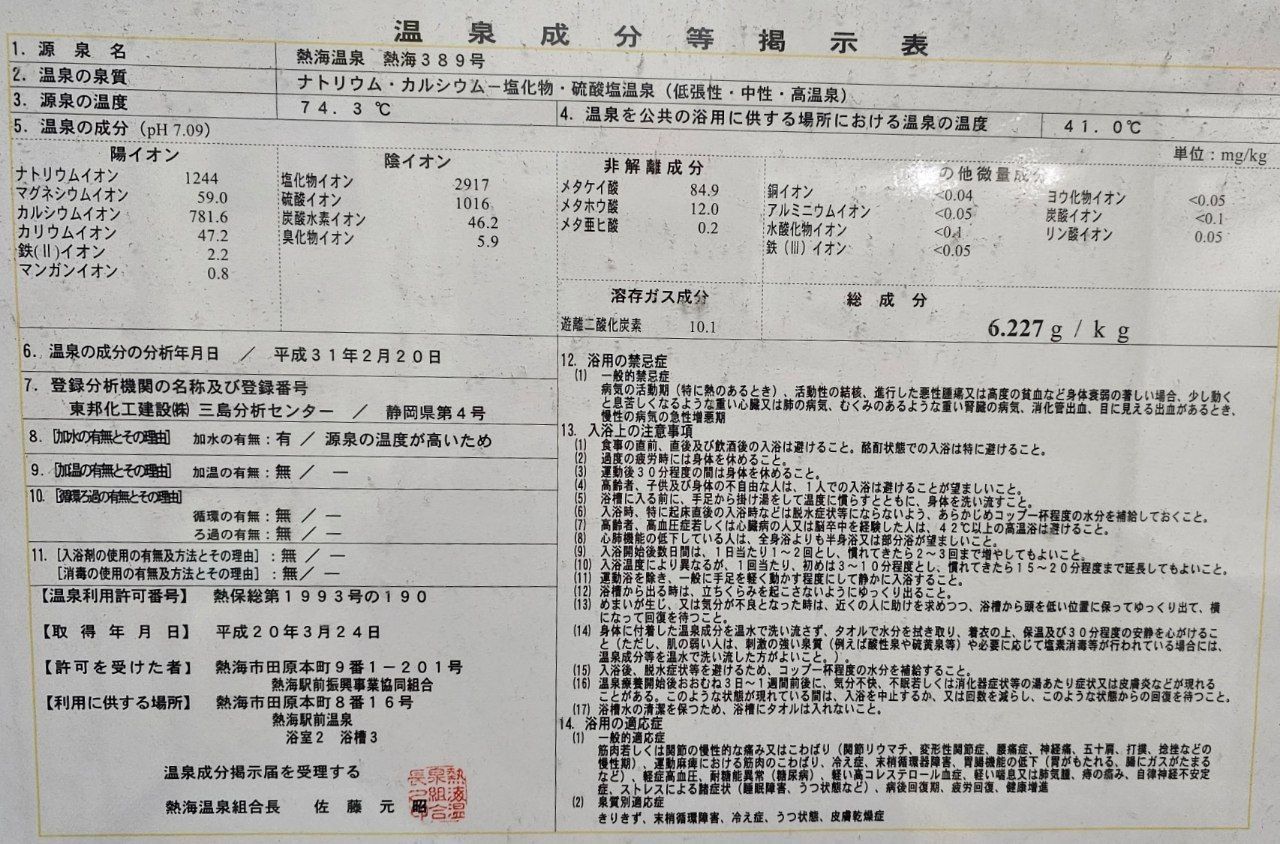 温泉成分等掲示表
1. 源泉名 熱海温泉 熱海389号
2. 温泉の泉質 ナトリウム・カルシウム－塩化物・硫酸塩温泉（低張性・中性・高温泉）
3. 源泉の温度 74.3 ℃
4. 温泉を公共の浴用に供する場所における温泉の温度 41.0℃
5. 温泉の成分（pH 7.09）
単位：mg/kg
陽イオン
ナトリウムイオン 1244
マグネシウムイオン 59.0
カルシウムイオン 781.6
カリウムイオン 47.2
鉄(Ⅱ)イオン 2.2
マンガンイオン 0.8
陰イオン
塩化物イオン 2917
硫酸イオン 1016
炭酸水素イオン 46.2
臭化物イオン 5.9
非解離成分
メタケイ酸 84.9
メタホウ酸 12.0
メタ亜ヒ酸 0.2
の他微量成分
銅イオン <0.04
アルミニウムイオン <0.05
水酸化物イオン <0.1
鉄(Ⅲ)イオン <0.05
ヨウ化物イオン <0.05
炭酸イオン <0.1
リン酸イオン 0.05
溶存ガス成分
遊離二酸化炭素 10.1
総成分
6.227 g / k g
6. 温泉の成分の分析年月日 ／ 平成31年2月20日
7. 登録分析機関の名称及び登録番号
東邦化工建設㈱ 三島分析センター ／ 静岡県第4号
8. [加水の有無とその理由] 加水の有無：有 ／ 源泉の温度が高いため
9. [加温の有無とその理由] 加温の有無：無 ／ －
10. [循環ろ過の有無とその理由]
循環の有無：無 ／ －
ろ過の有無：無 ／ －
11. [入浴剤の使用の有無及方法とその理由]：無 ／ －
[消毒の使用の有無及方法とその理由]：無／ －
【温泉利用許可番号】 熱保総第1993号の190
【取得年月日】 平成20年3月24日
【許可を受けた者】 熱海市田原本町9番1－201号
熱海駅前振興事業協同組合
【利用に供する場所】 熱海市田原本町8番16号
熱海駅前温泉
浴室2 浴槽3
温泉成分掲示届を受理する
熱海温泉組合長 佐藤元昭
熱海温泉組合長之印
12. 浴用の禁忌症
(1) 一般的禁忌症
病気の活動期（特に熱のあるとき）、活動性の結核、進行した悪性腫瘍又は高度の貧血など身体衰弱の著しい場合、少し動く
と息苦しくなるような重い心臓又は肺の病気、むくみのあるような重い腎臓の病気、消化管出血、目に見える出血があるとき、
慢性の病気の急性増悪期
13. 入浴上の注意事項
(1) 食事の直前、直後及び飲酒後の入浴は避けること。酩酊状態での入浴は特に避けること。
(2) 過度の疲労時には身体を休めること。
(3) 運動後30分程度の間は身体を休めること。
(4) 高齢者、子供及び身体の不自由な人は、1人での入浴は避けることが望ましいこと。
(5) 浴槽に入る前に、手足から掛け湯をして温度に慣らすとともに、身体を洗い流すこと。
(6) 入浴時、特に起床直後の入浴時などは脱水症状等にならないよう、あらかじめコップ一杯程度の水分を補給しておくこと。
(7) 高齢者、高血圧症若しくは心臓病の人又は脳卒中を経験した人は、42℃以上の高温浴は避けること。
(8) 心肺機能の低下している人は、全身浴よりも半身浴又は部分浴が望ましいこと。
(9) 入浴開始後数日間は、1日当たり1～2回とし、慣れてきたら2～3回まで増やしてもよいこと。
(10) 入浴温度により異なるが、1回当たり、初めは3～10分程度とし、慣れてきたら15～20分程度まで延長してもよいこと。
(11) 運動浴を除き、一般に手足を軽く動かす程度にして静かに入浴すること。
(12) 浴槽から出る時は、立ちくらみを起こさないようにゆっくり出ること。
(13) めまいが生じ、又は気分が不良となった時は、近くの人に助けを求めつつ、浴槽から頭を低い位置に保ってゆっくり出て、横
になって回復を待つこと。
(14) 身体に付着した温泉成分を温水で洗い流さず、タオルで水分を拭き取り、着衣の上、保温及び30分程度の安静を心がけるこ
と（ただし、肌の弱い人は、刺激の強い泉質（例えば酸性泉や硫黄泉等）や必要に応じて塩素消毒等が行われている場合には、
温泉成分等を温水で洗い流した方がよいこと。）。
(15) 入浴後、脱水症状等を避けるため、コップ一杯程度の水分を補給すること。
(16) 温泉療養開始後おおむね3日～1週間前後に、気分不快、不眠若しくは消化器症状等の湯あたり症状又は皮膚炎などが現れる
ことがある。このような状態が現れている間は、入浴を中止するか、又は回数を減らし、このような状態からの回復を待つこと。
(17) 浴槽水の清潔を保つため、浴槽にタオルは入れないこと。
14. 浴用の適応症
(1) 一般的適応症
筋肉若しくは関節の慢性的な痛み又はこわばり（関節リウマチ、変形性関節症、腰痛症、神経痛、五十肩、打撲、捻挫などの
慢性期）、運動麻痺における筋肉のこわばり、冷え症、末梢循環器障害、胃腸機能の低下（胃がもたれる、腸にガスがたまる
など）、軽症高血圧、耐糖能異常（糖尿病）、軽い高コレステロール血症、軽い喘息又は肺気腫、痔の痛み、自律神経不安定
症、ストレスによる諸症状（睡眠障害、うつ状態など）、病後回復期、疲労回復、健康増進
(2) 泉質別適応症
きりきず、末梢循環障害、冷え症、うつ状態、皮膚乾燥症